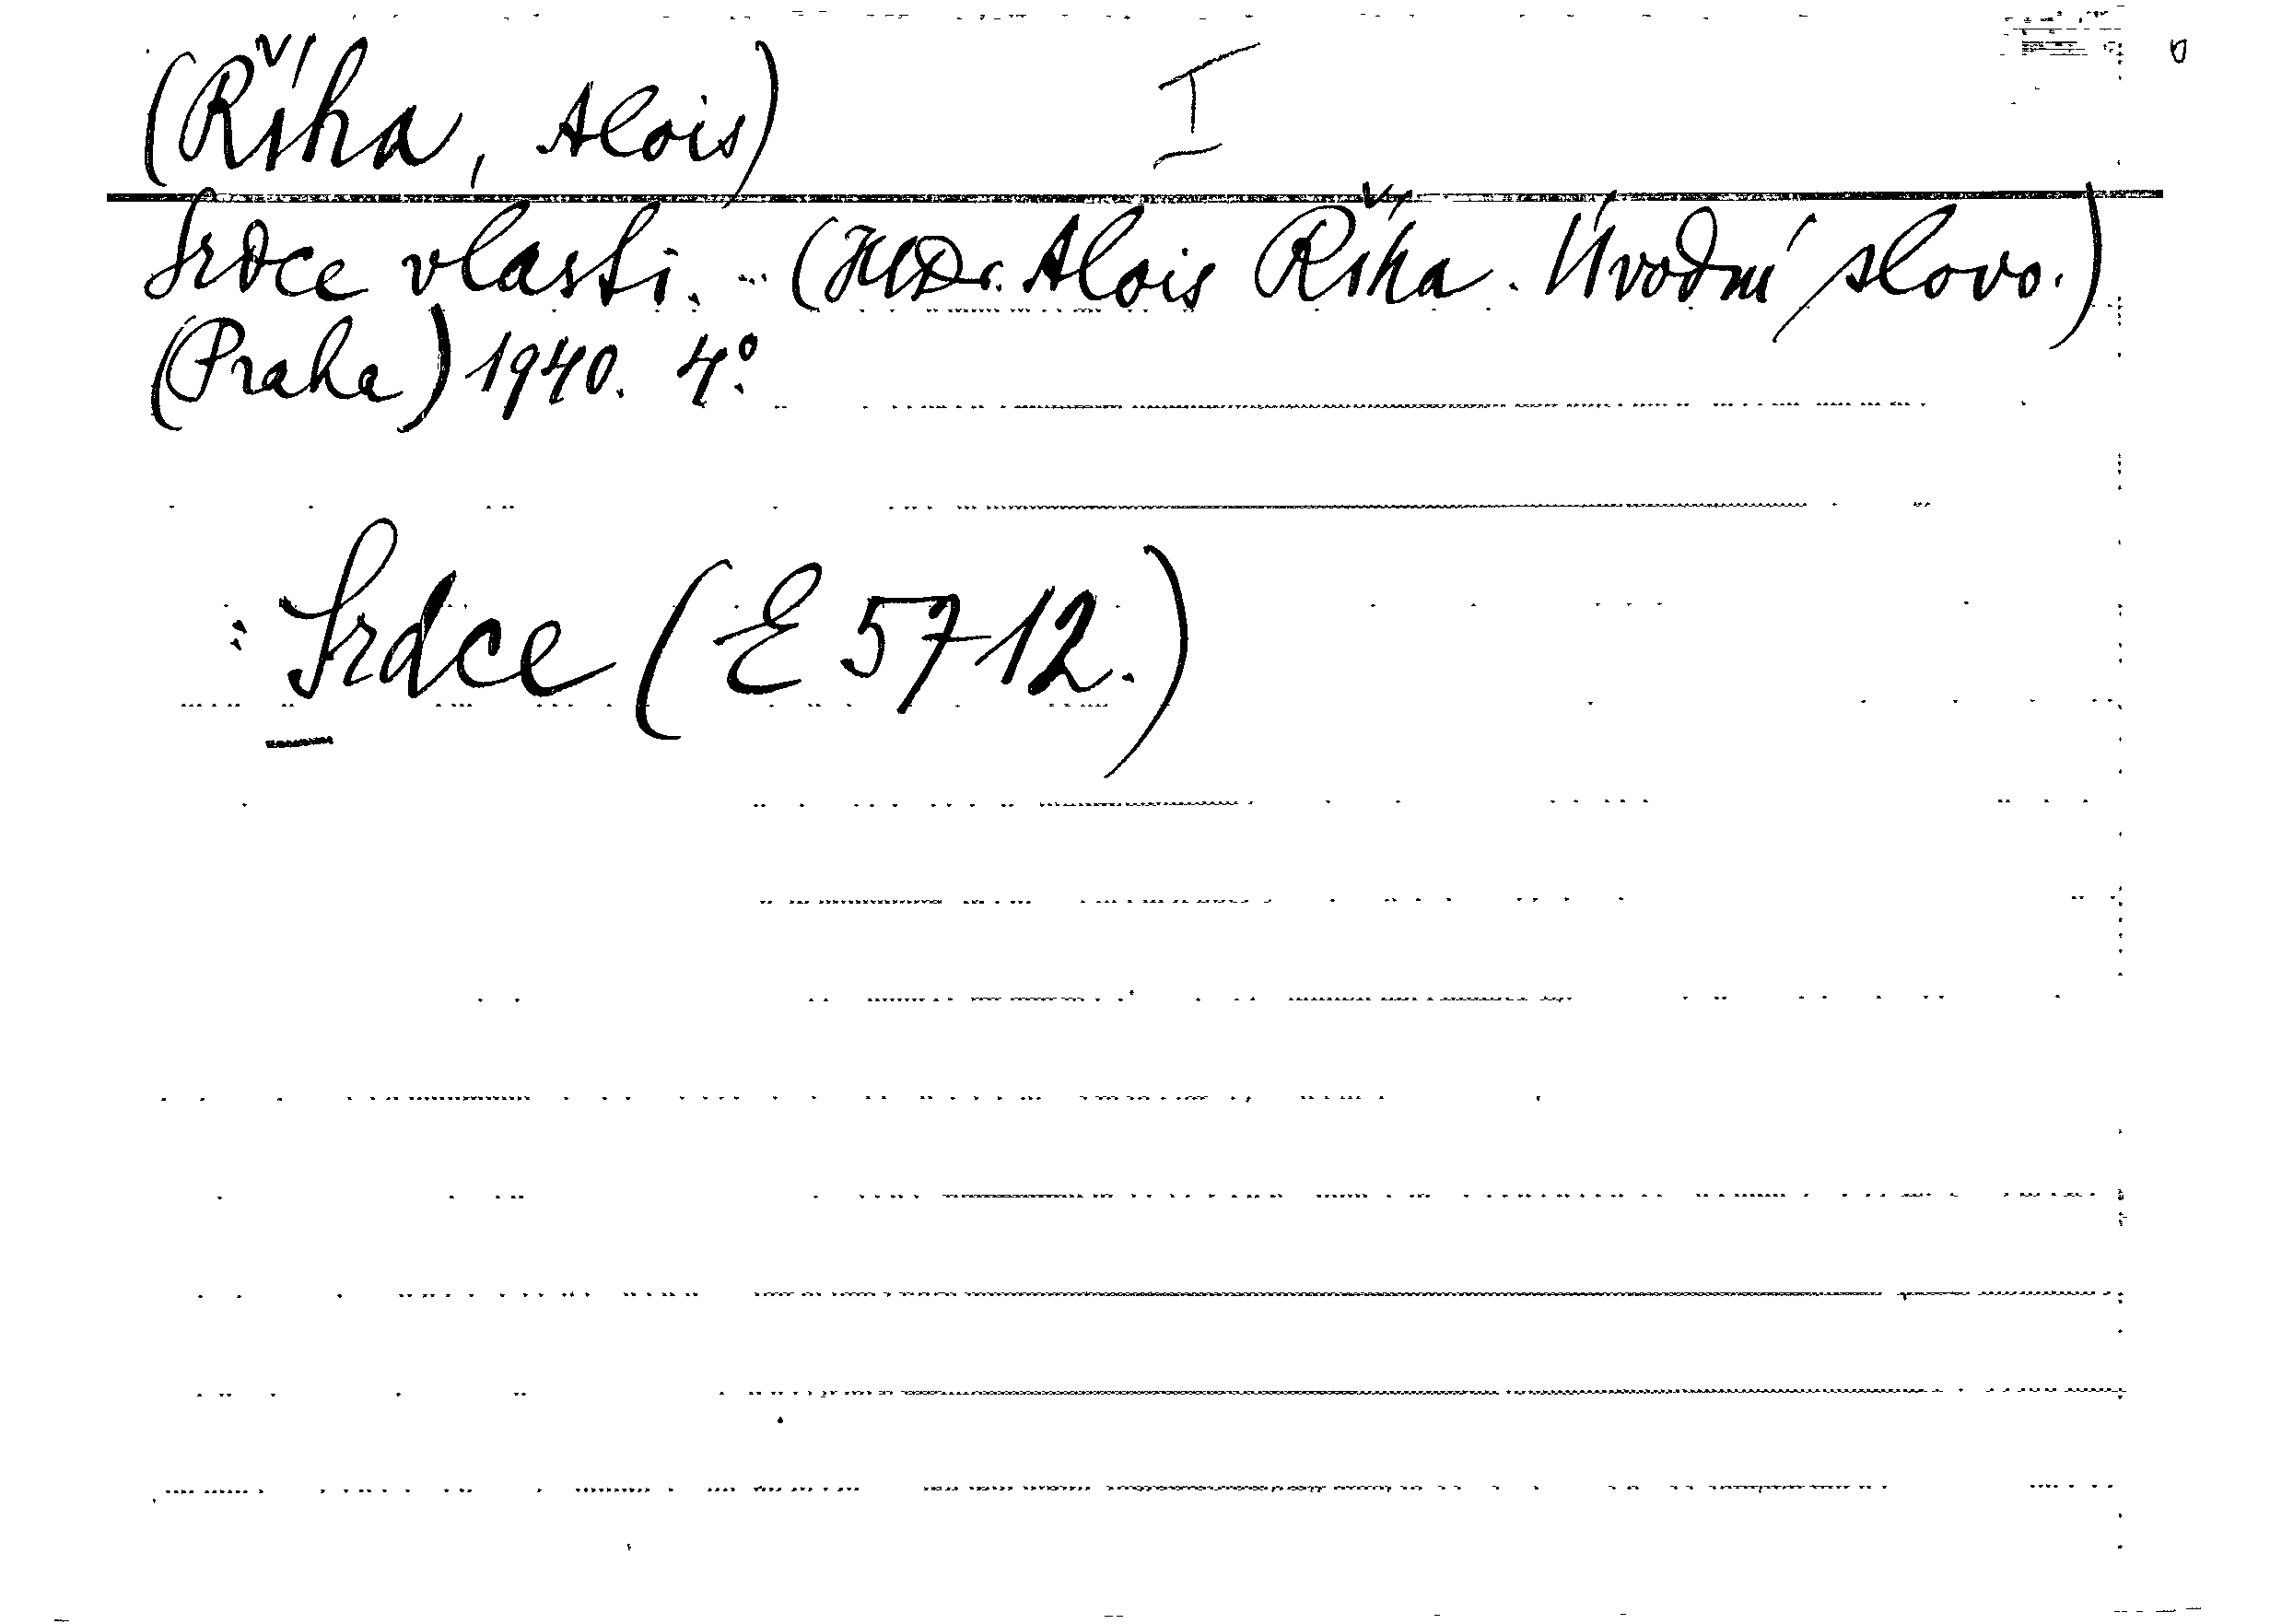 (Říha, Alois) I
Srdce vlasti. - (JUDr. Alois Říha. Úvodní slovo.)
(Praha) 1940. 4°.
: Srdce (E 5712.)